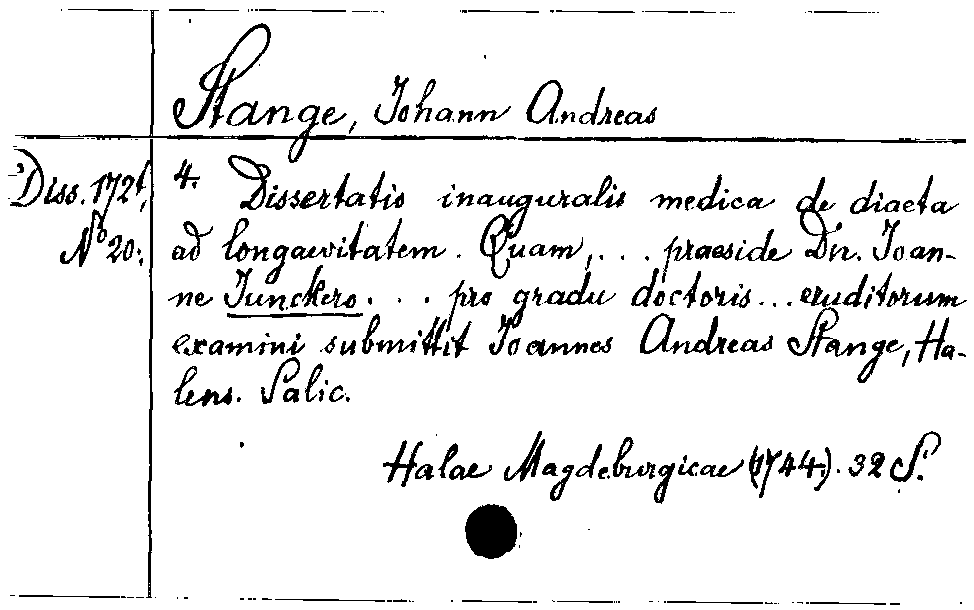 Stange, Johann Andreas
Diss. 172t,
No 20.
4. Dissertatio inauguralis medica de diaeta
ad longaevitatem. Quam, ... praeside Dn. Joan-
ne Junckero ... pro gradu doctoris ... eruditorum
examini submittit Joannes Andreas Stange, Ha-
lens. Salic.
Halae Magdeburgicae (1744). 32 S.